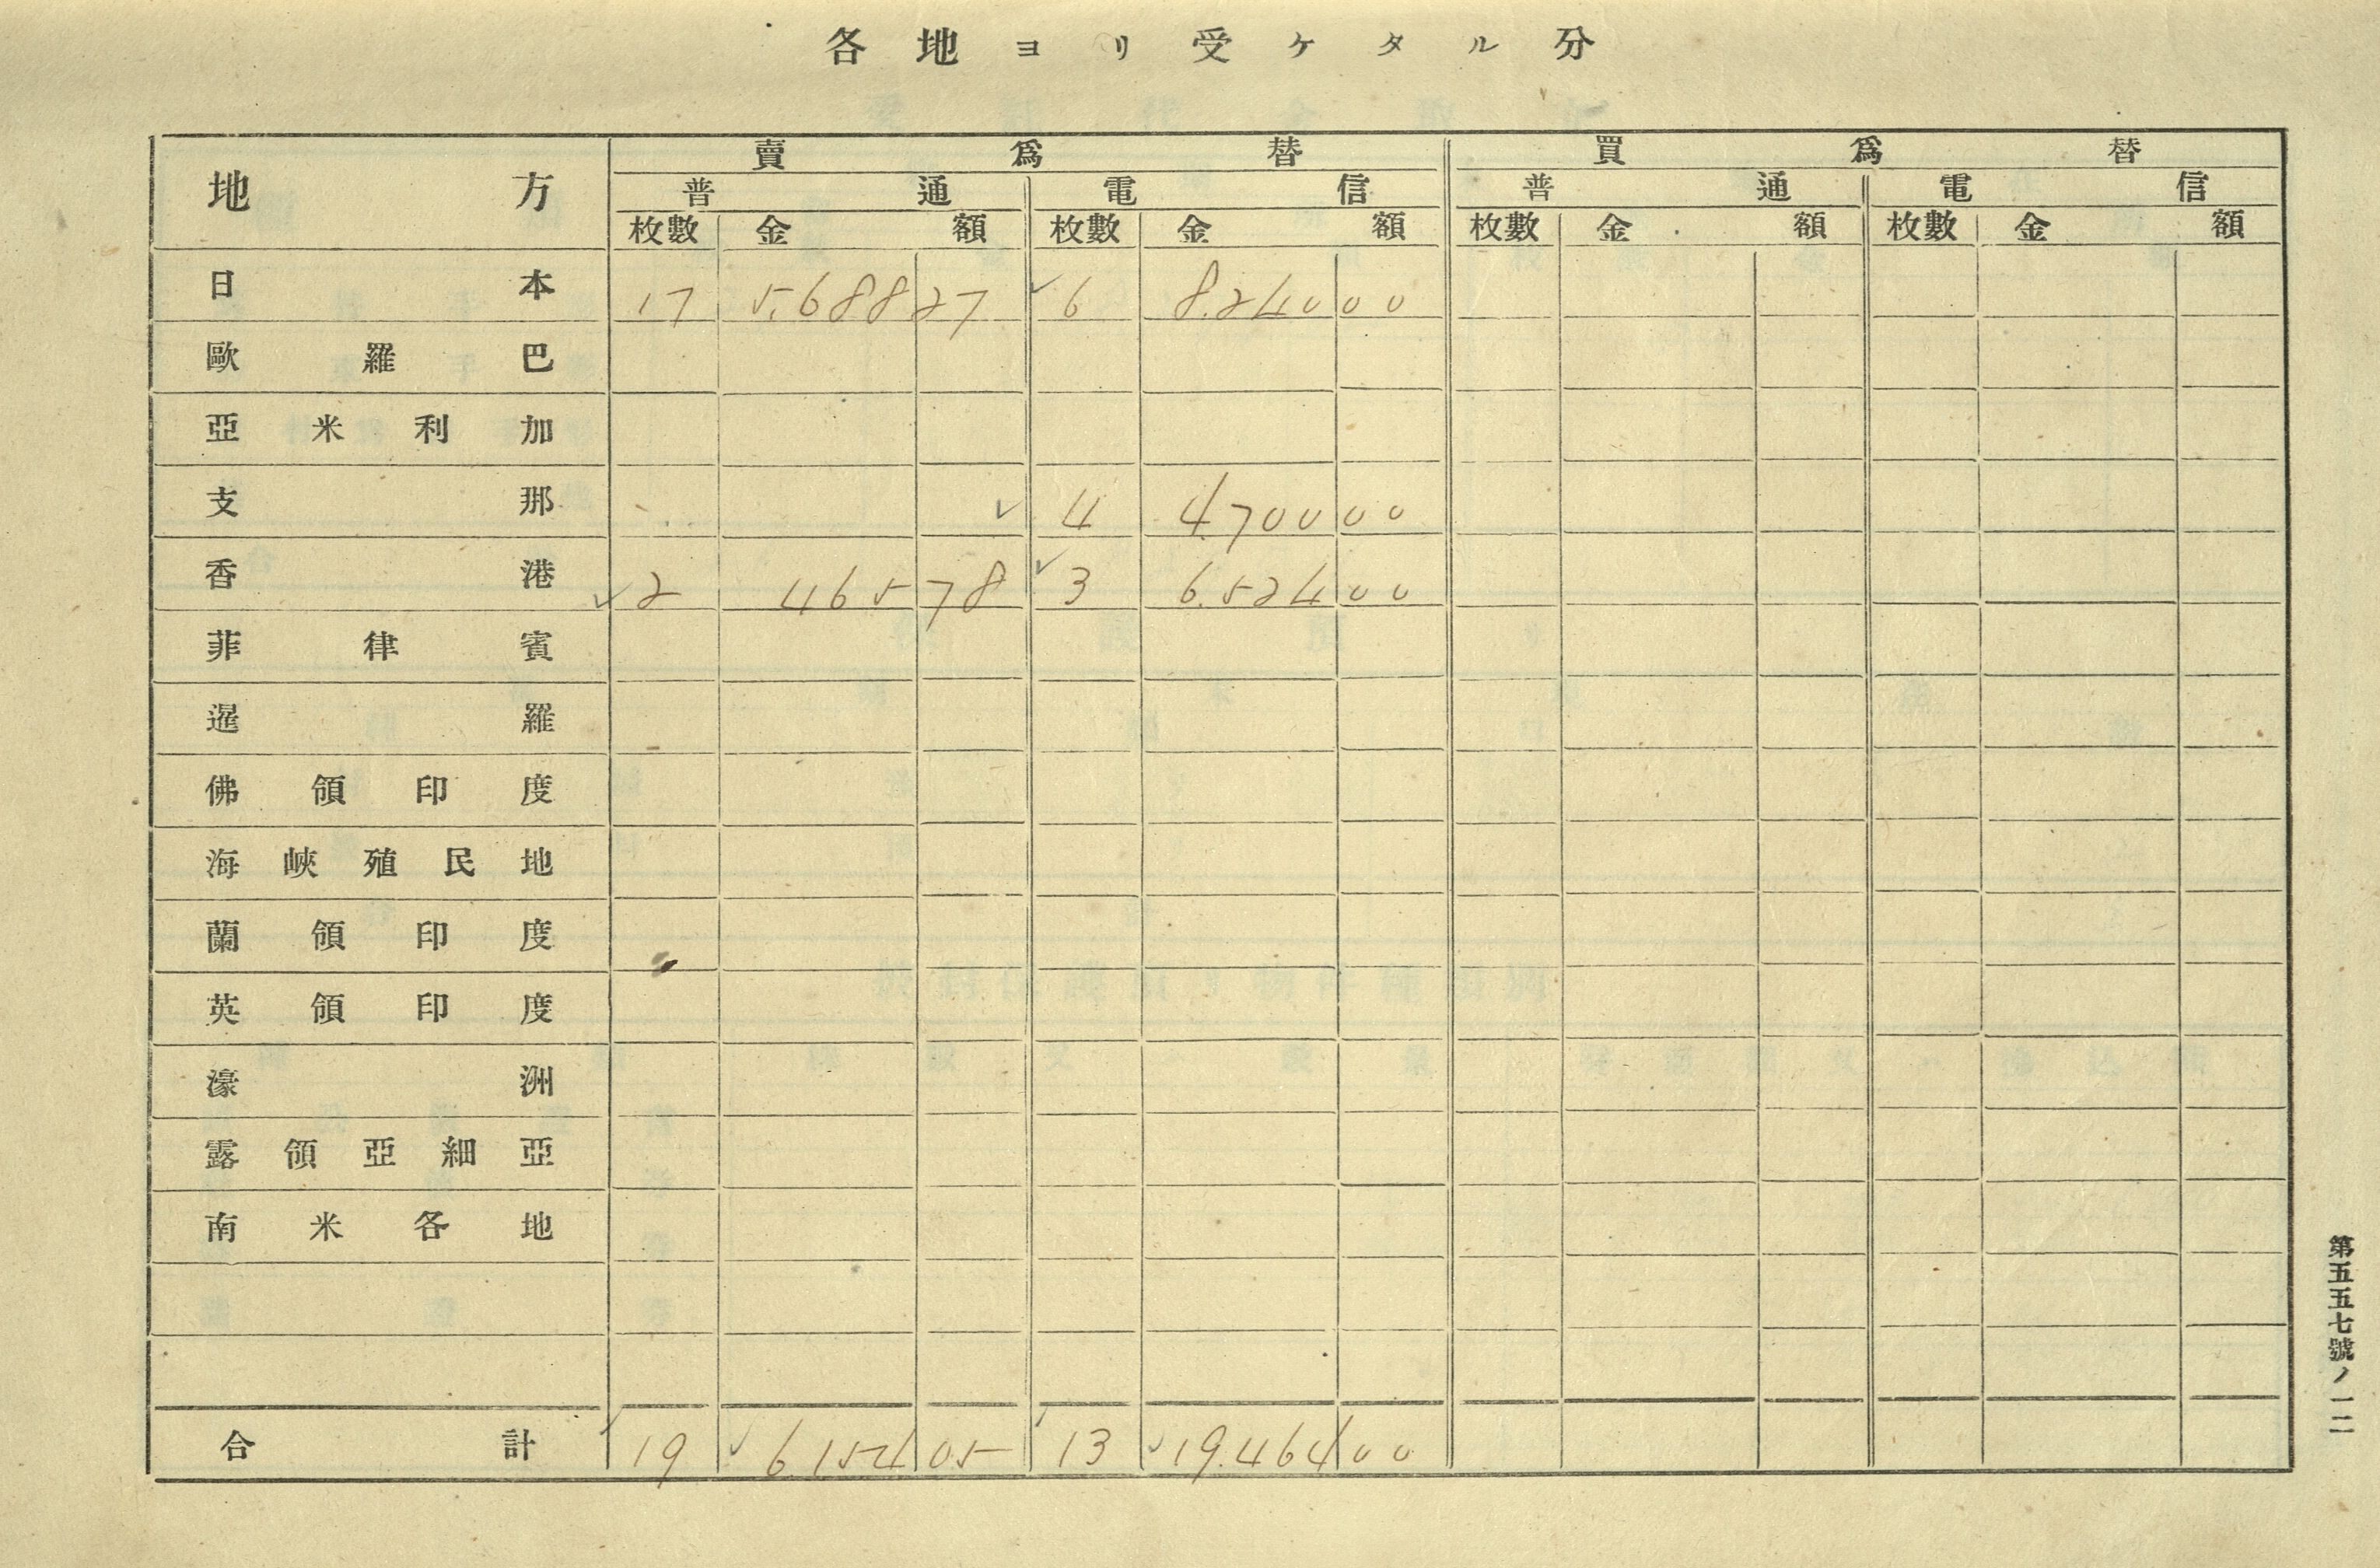 各地ヨリ受ケタル分
地方 賣爲替 買爲替
普通 電信 普通 電信
枚數 金額 枚數 金額 枚數 金額 枚數 金額
日本 17 5,688 27 6 8.240 00
歐羅巴
亞米利加
支那 4 4.700 00
香港 2 465 78 3 6.524 00
菲律賓
暹羅
佛領印度
海峽殖民地
蘭領印度
英領印度
濠洲
露領亞細亞
南米各地
合計 19 6.154 05 13 19.464 00
第五五七號ノ一二